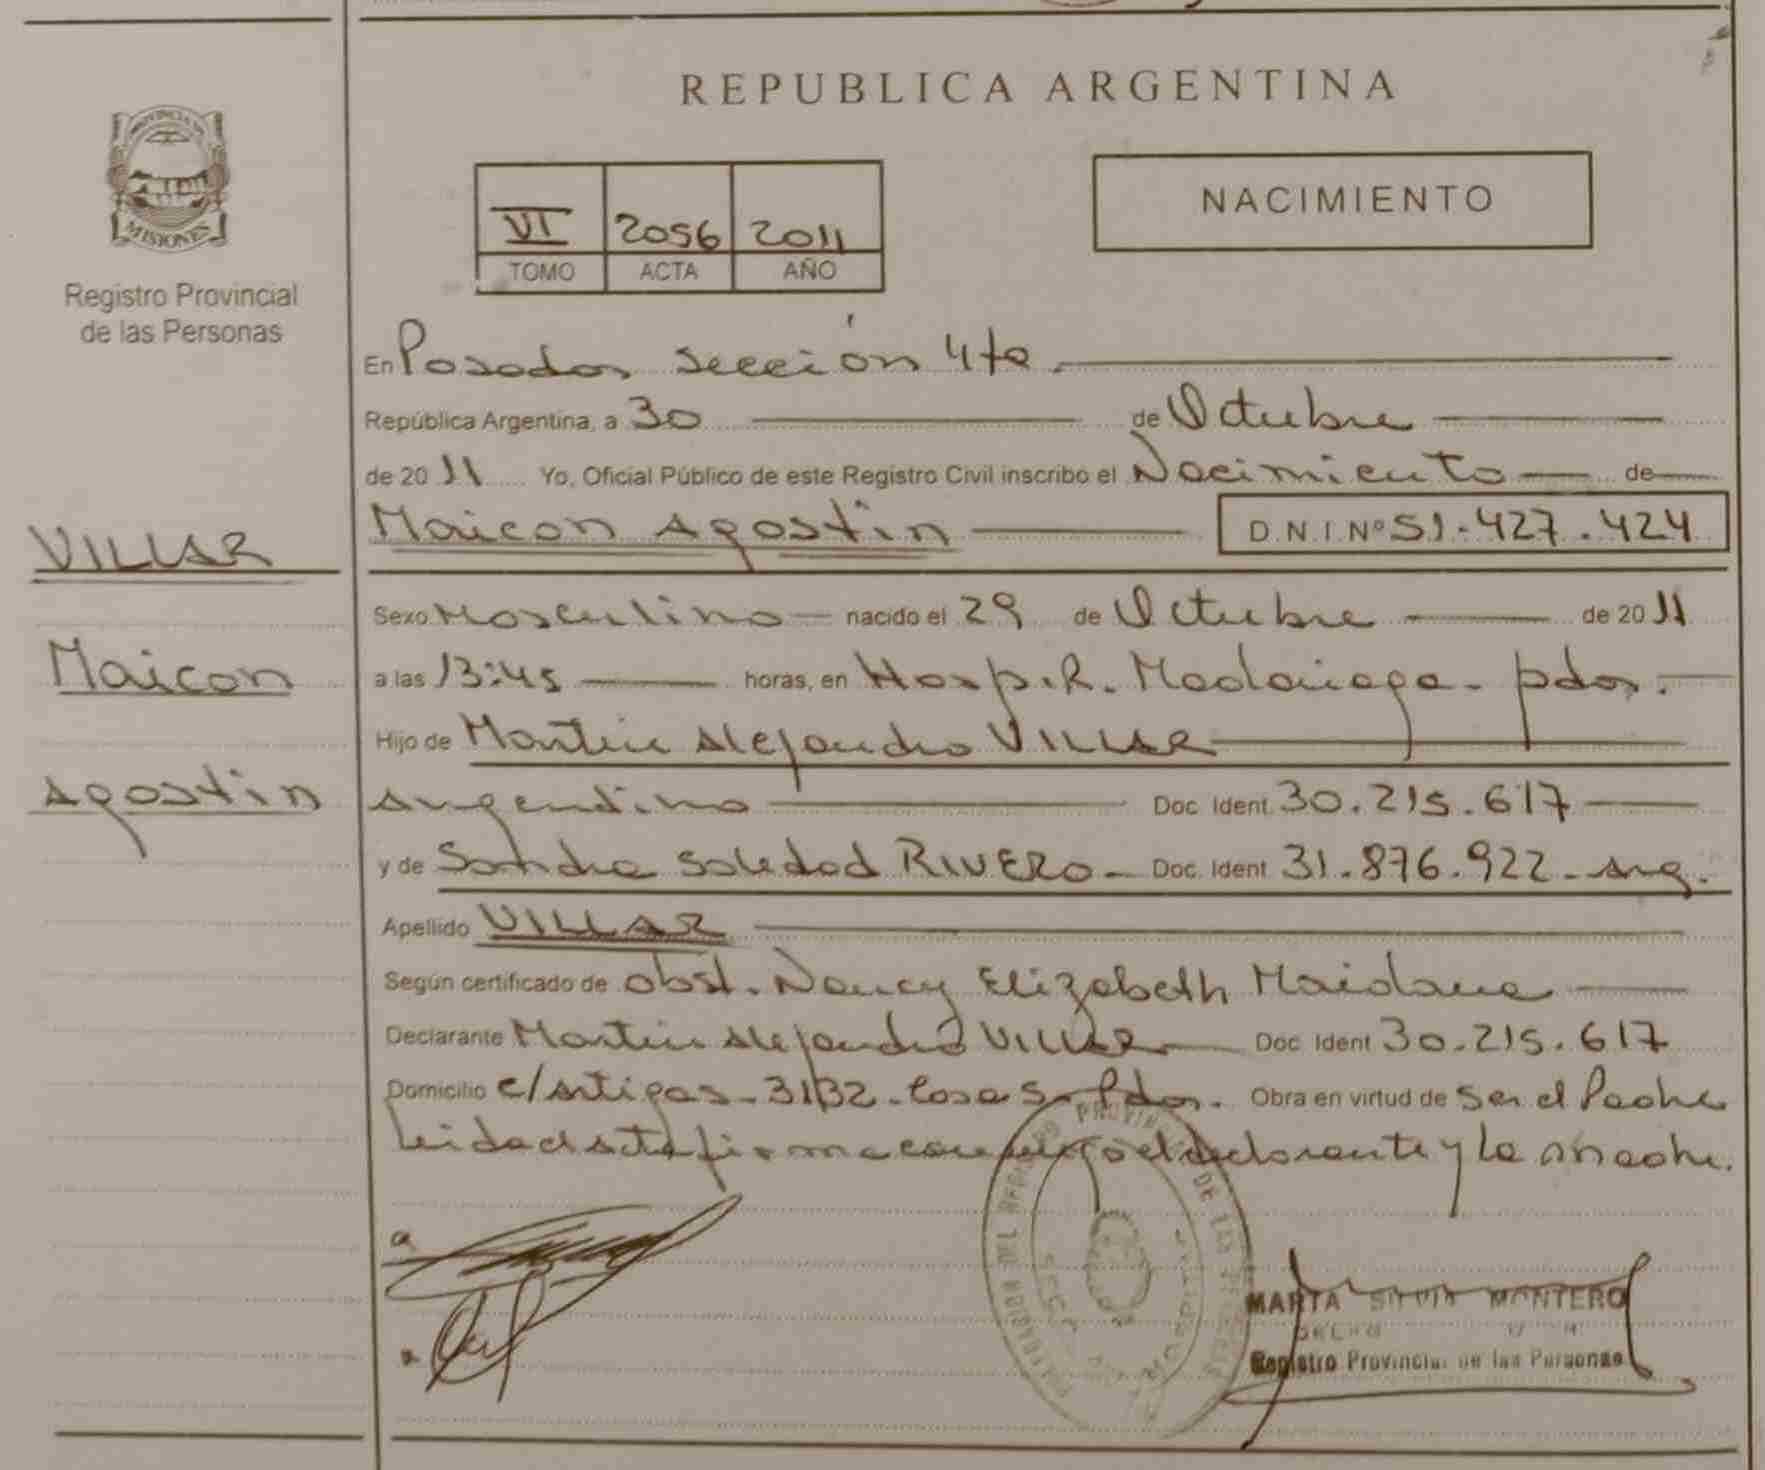 REPUBLICA ARGENTINA
PROVINCIA DE
MISIONES
Registro Provincial
de las Personas
NACIMIENTO
VI 2056 2011
TOMO ACTA AÑO
En Posadas Sección 4ta.
República Argentina, a 30 de Octubre
de 2011 Yo, Oficial Público de este Registro Civil inscribo el Nacimiento de
Maicon Agostin D.N.I. Nº 51.427.424
VILLAR
Maicon
Agostin
Sexo Masculino nacido el 29 de Octubre de 2011
a las 13:45 horas, en Hosp. R. Madariaga - pdas.
Hijo de Martin Alejandro VILLAR
Argentino Doc. Ident. 30.215.617
y de Sandra Soledad RIVERO - Doc. Ident 31.876.922 - Arg.
Apellido VILLAR
Según certificado de obst. Nancy Elizabeth Maidana
Declarante Martin Alejandro VILLAR Doc. Ident 30.215.617
Domicilio c/Artigas - 3132 - Casa 5 - Pdas. Obra en virtud de Ser el Padre
Leida el acta firma conmigo el declarante y la madre.
MARTA SILVIA MONTERO
Registro Provincial de las Personas